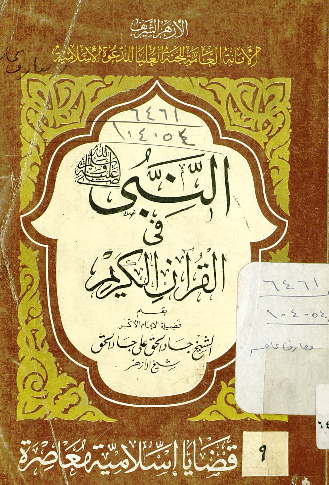 الأزهر الشريف
الأمانة العامة للجنة العليا للدعوة الإسلامية
٦٤٦١
١٠٤٠٥٤
النبى
صلى الله عليه وسلم
فى
القرآن الكريم
بقلم
فضيلة الإمام الأكبر
الشيخ جاد الحق على جاد الحق
شيخ الأزهر
٦٤٦١
١٠٤٠٥٤
معارف عامه
٩
قضايا إسلامية معاصرة